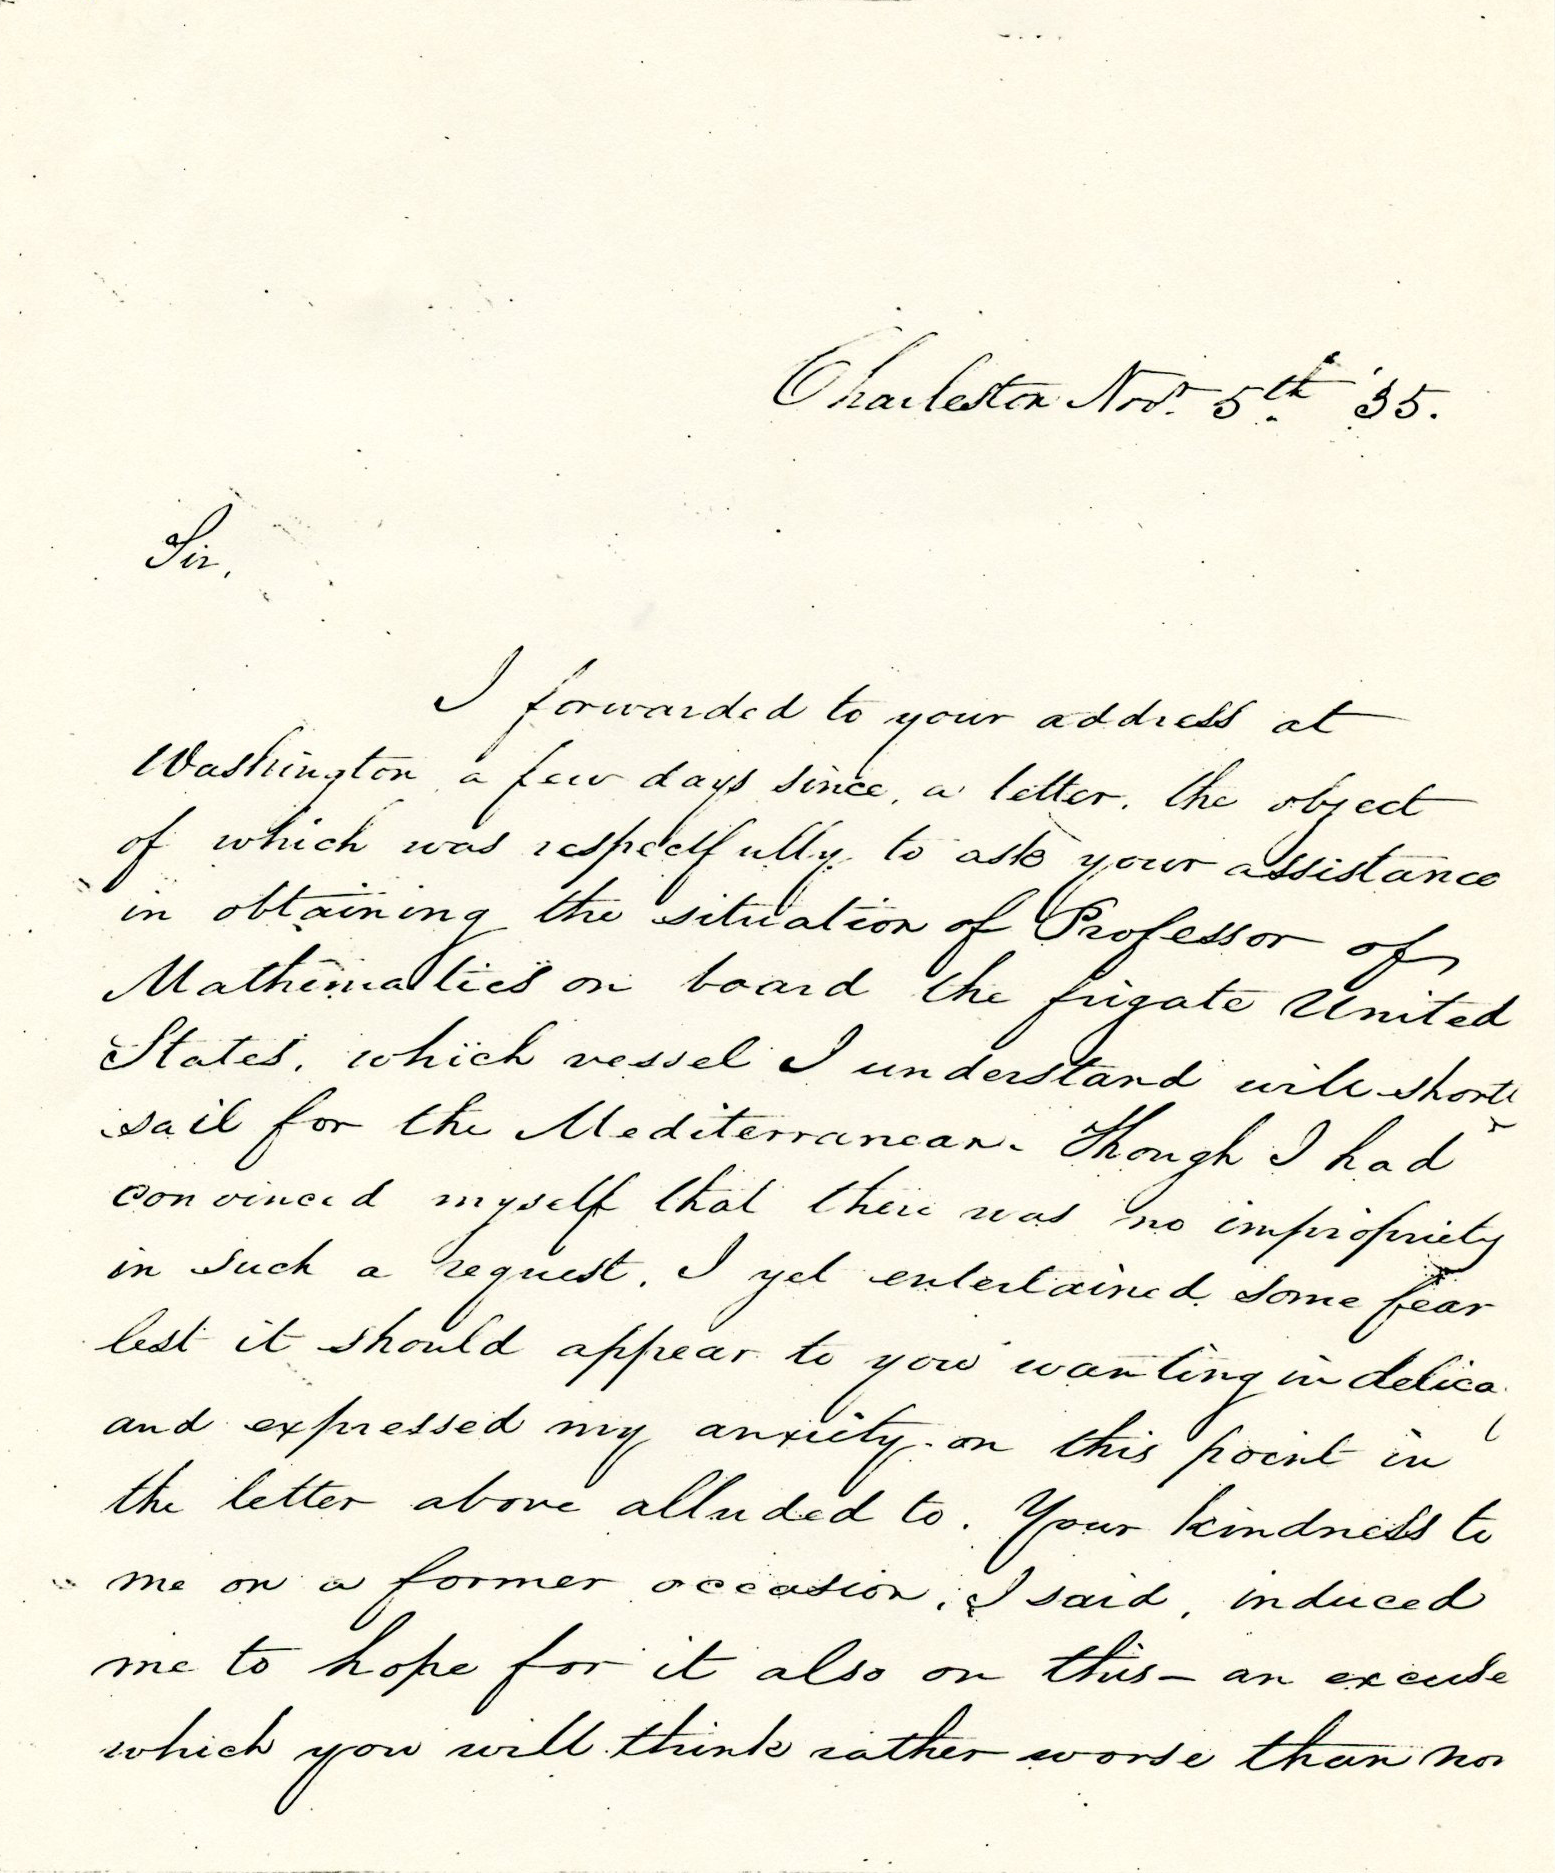 Charleston Novr. 5th '35.
Sir,
I forwarded to your address at
Washington a few days since, a letter, the object
of which was respectfully to ask your assistance
in obtaining the situation of Professor of
Mathematics on board the frigate United
States, which vessel I understand will shortly
sail for the Mediterranean. Though I had
convinced myself that there was no impropriety
in such a request, I yet entertained some fear
lest it should appear to you wanting in delica
and expressed my anxiety on this point in
the letter above alluded to. Your kindness to
me on a former occasion, I said, induced
me to hope for it also on this— an excuse
which you will think rather worse than non